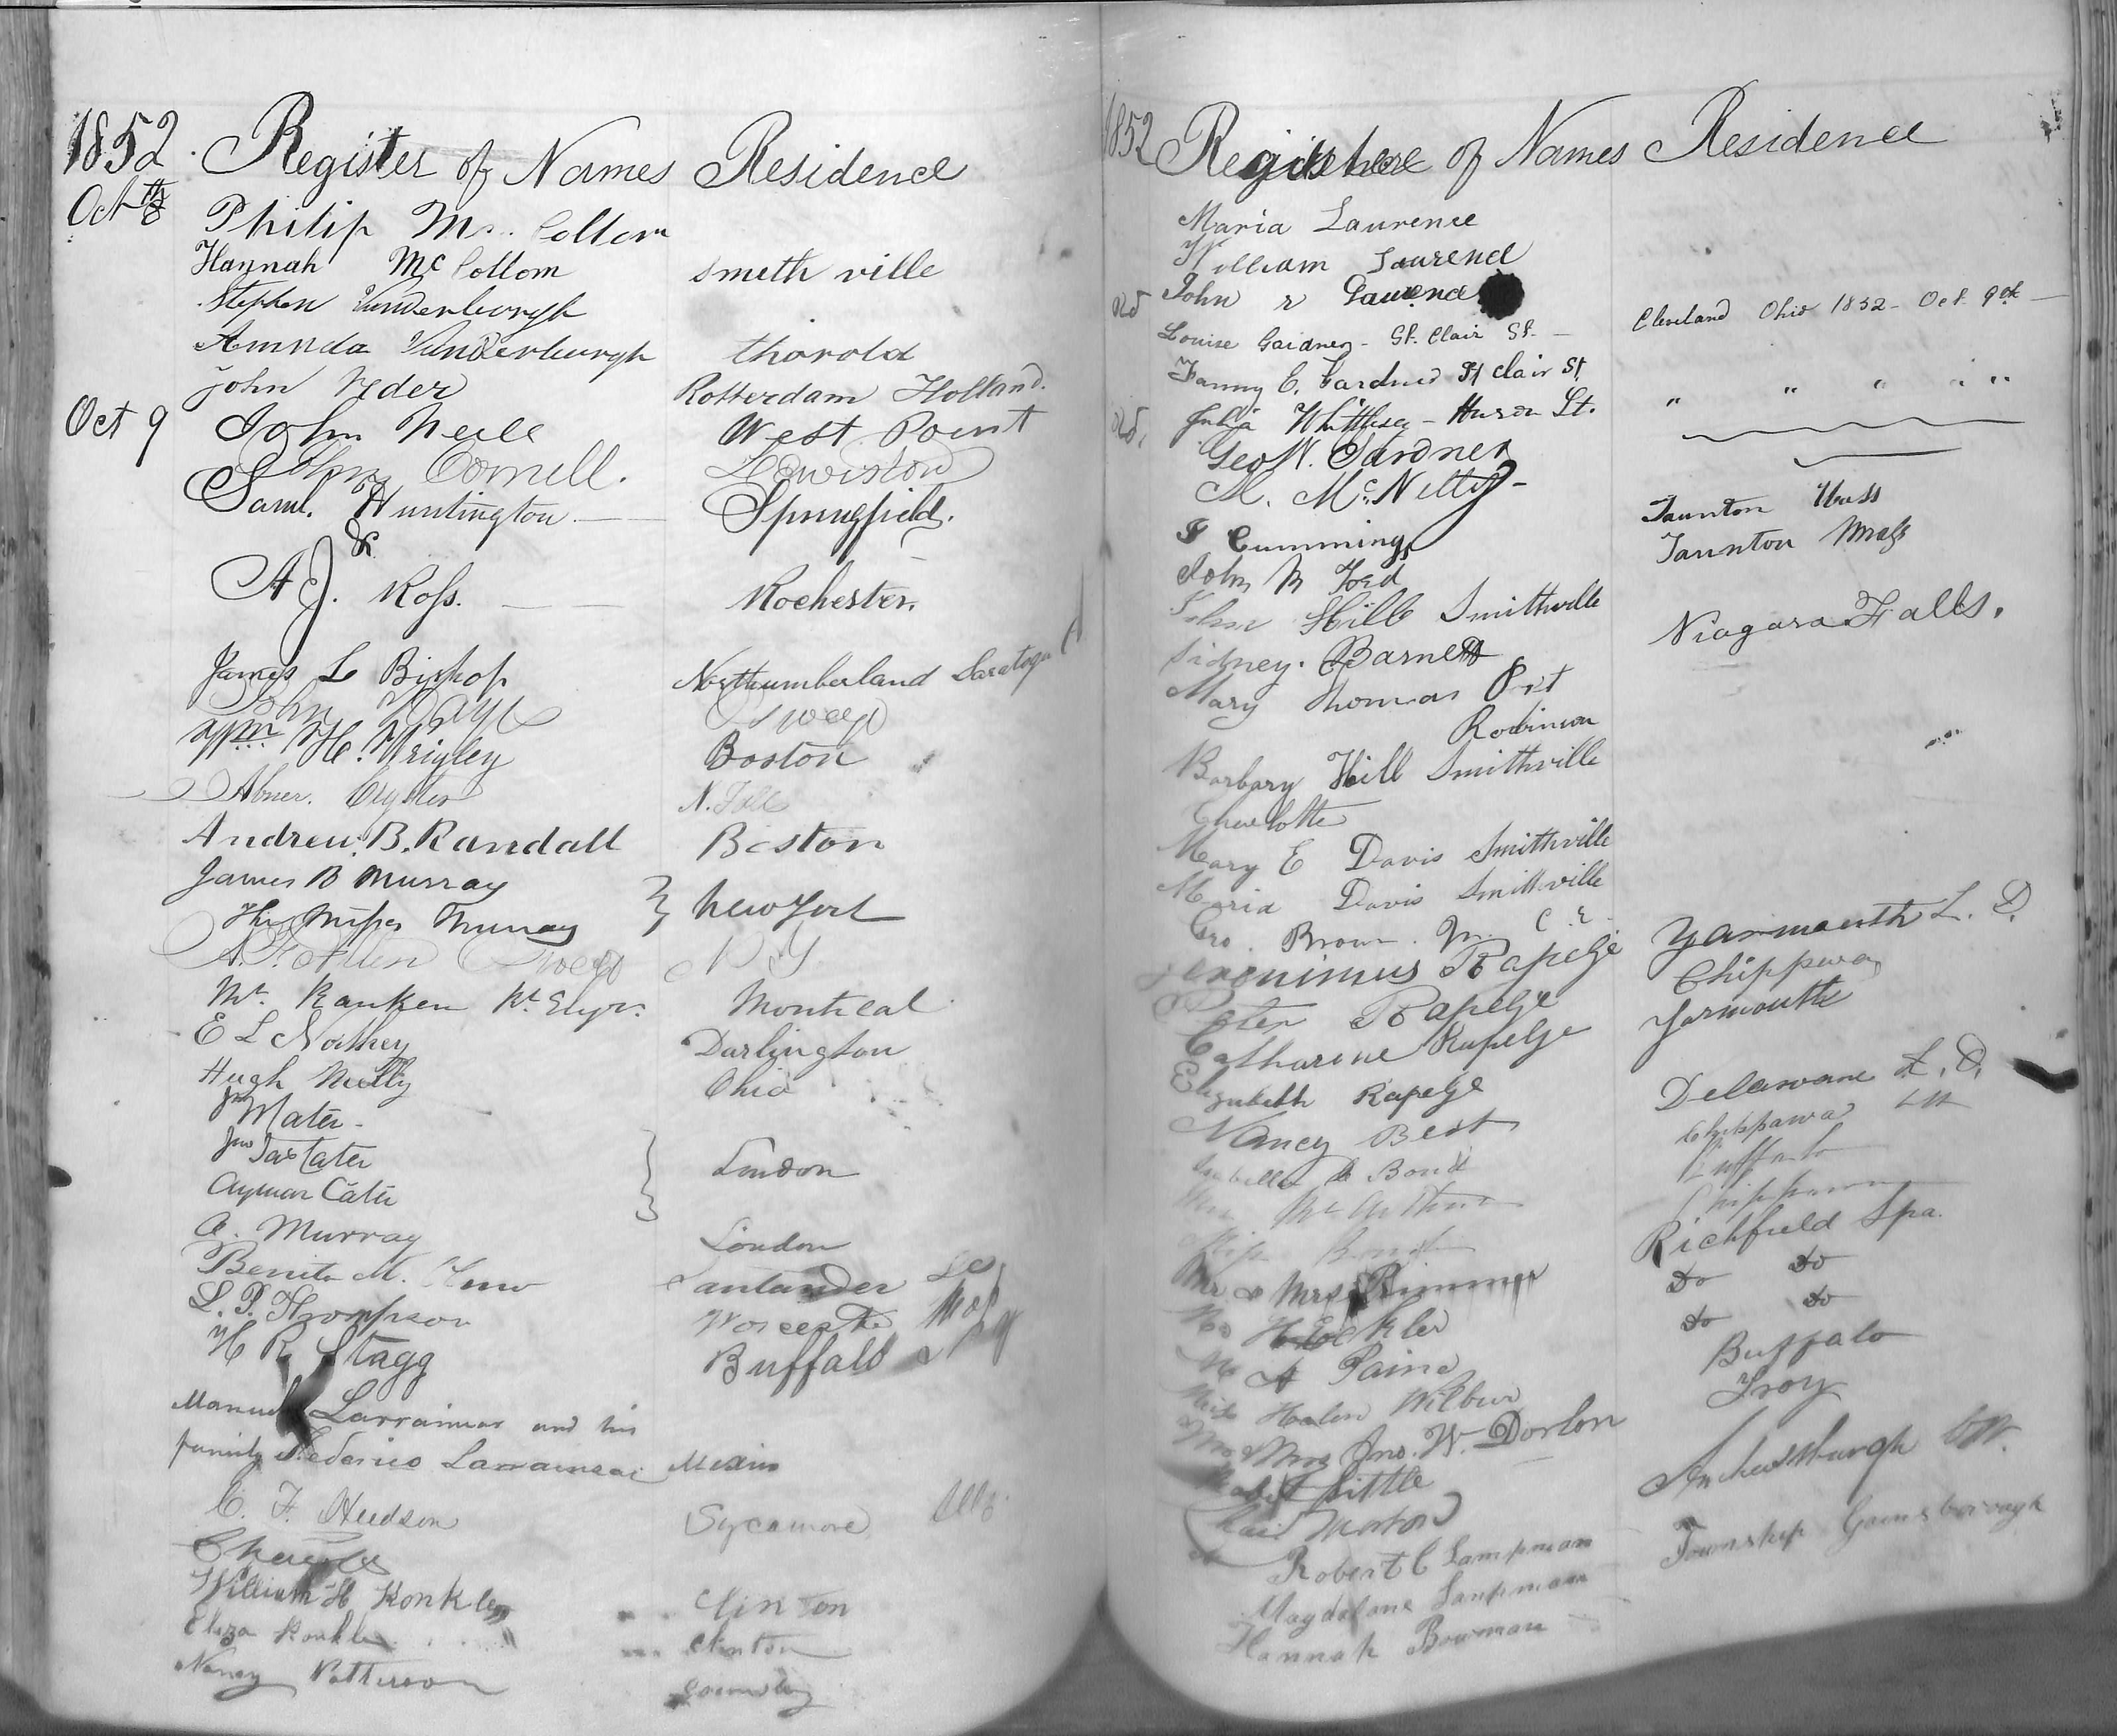 1852. Register of Names Residence
Octth 8 Philip Mc. Collom
Hannah Mc Collom Smeth ville
Stephen Vanderburgh
Amnda Vanderburgh thorold
John Rotterdam Holland.
Oct 9 John Neill West Point
John Cornell. Lewiston
Saml. Huntington — Springfield.
&
A J. Ross. — — Rochester.
James L Bishop Northumberland Saratoga
John
Wm H. Wrigley Boston
Abner. N. Fall
Andrew. B. Randall Boston
James B Murray
The Misses Murray } New York
A. F. Allen N Y
Mr. Ranken Montreal
E L Northey Darlington
Hugh Ohio
Cater
London
A. Murray London
Benito M. Santander
L. P. Thompson Worcester Mass
H R Stagg Buffalo N Y
Manuel Larrainzar and his
family Federico Larrainzar Mexico
C. F. Hudson Sycamore, Ills.
William H Konkle Clinton
Eliza Konkle Clinton
Nancy Patterson
1852 Register of Names Residence
Maria Laurence
William Laurence
John Laurence
Louise Gardner - St. Clair St. — Cleveland Ohio 1852 - Oct. 9th —
Fanny E. Gardner St Clair St. " " " "
Julia Whittlesey - Huron St.
Geo W. Gardner
M. McNitty -
Cummings Taunton Mass
John M Ford Taunton Mass
John Hill Smithville
Sidney. Barnett Niagara Falls.
Mary Thomas Port
Robinson
Barbary Hill Smithville
Charlotte
Mary E Davis Smithville
Maria Davis Smithville
Geo. Brown. Jr.
Jeronimus Rapelje Yarmouth L. D.
Peter Rapelje Chippewa
Catharine Rapelje Yarmouth
Elizabeth Rapelje
Nancy Best Delaware L. D.
Isabella Bond Chippawa
Mrs McArthur Buffalo
Miss Bond Chippawa
Mr & Mrs Rimmer Richfield Spa.
do do
A Paine do do
Miss Helen Wilbur Buffalo
Mr & Mrs Jno. W. Dorlon Troy
Robert Little
Amherstburgh CW.
Robert C Lampman Township Gainsborough
Magdalane Lampman
Hannah Bowman